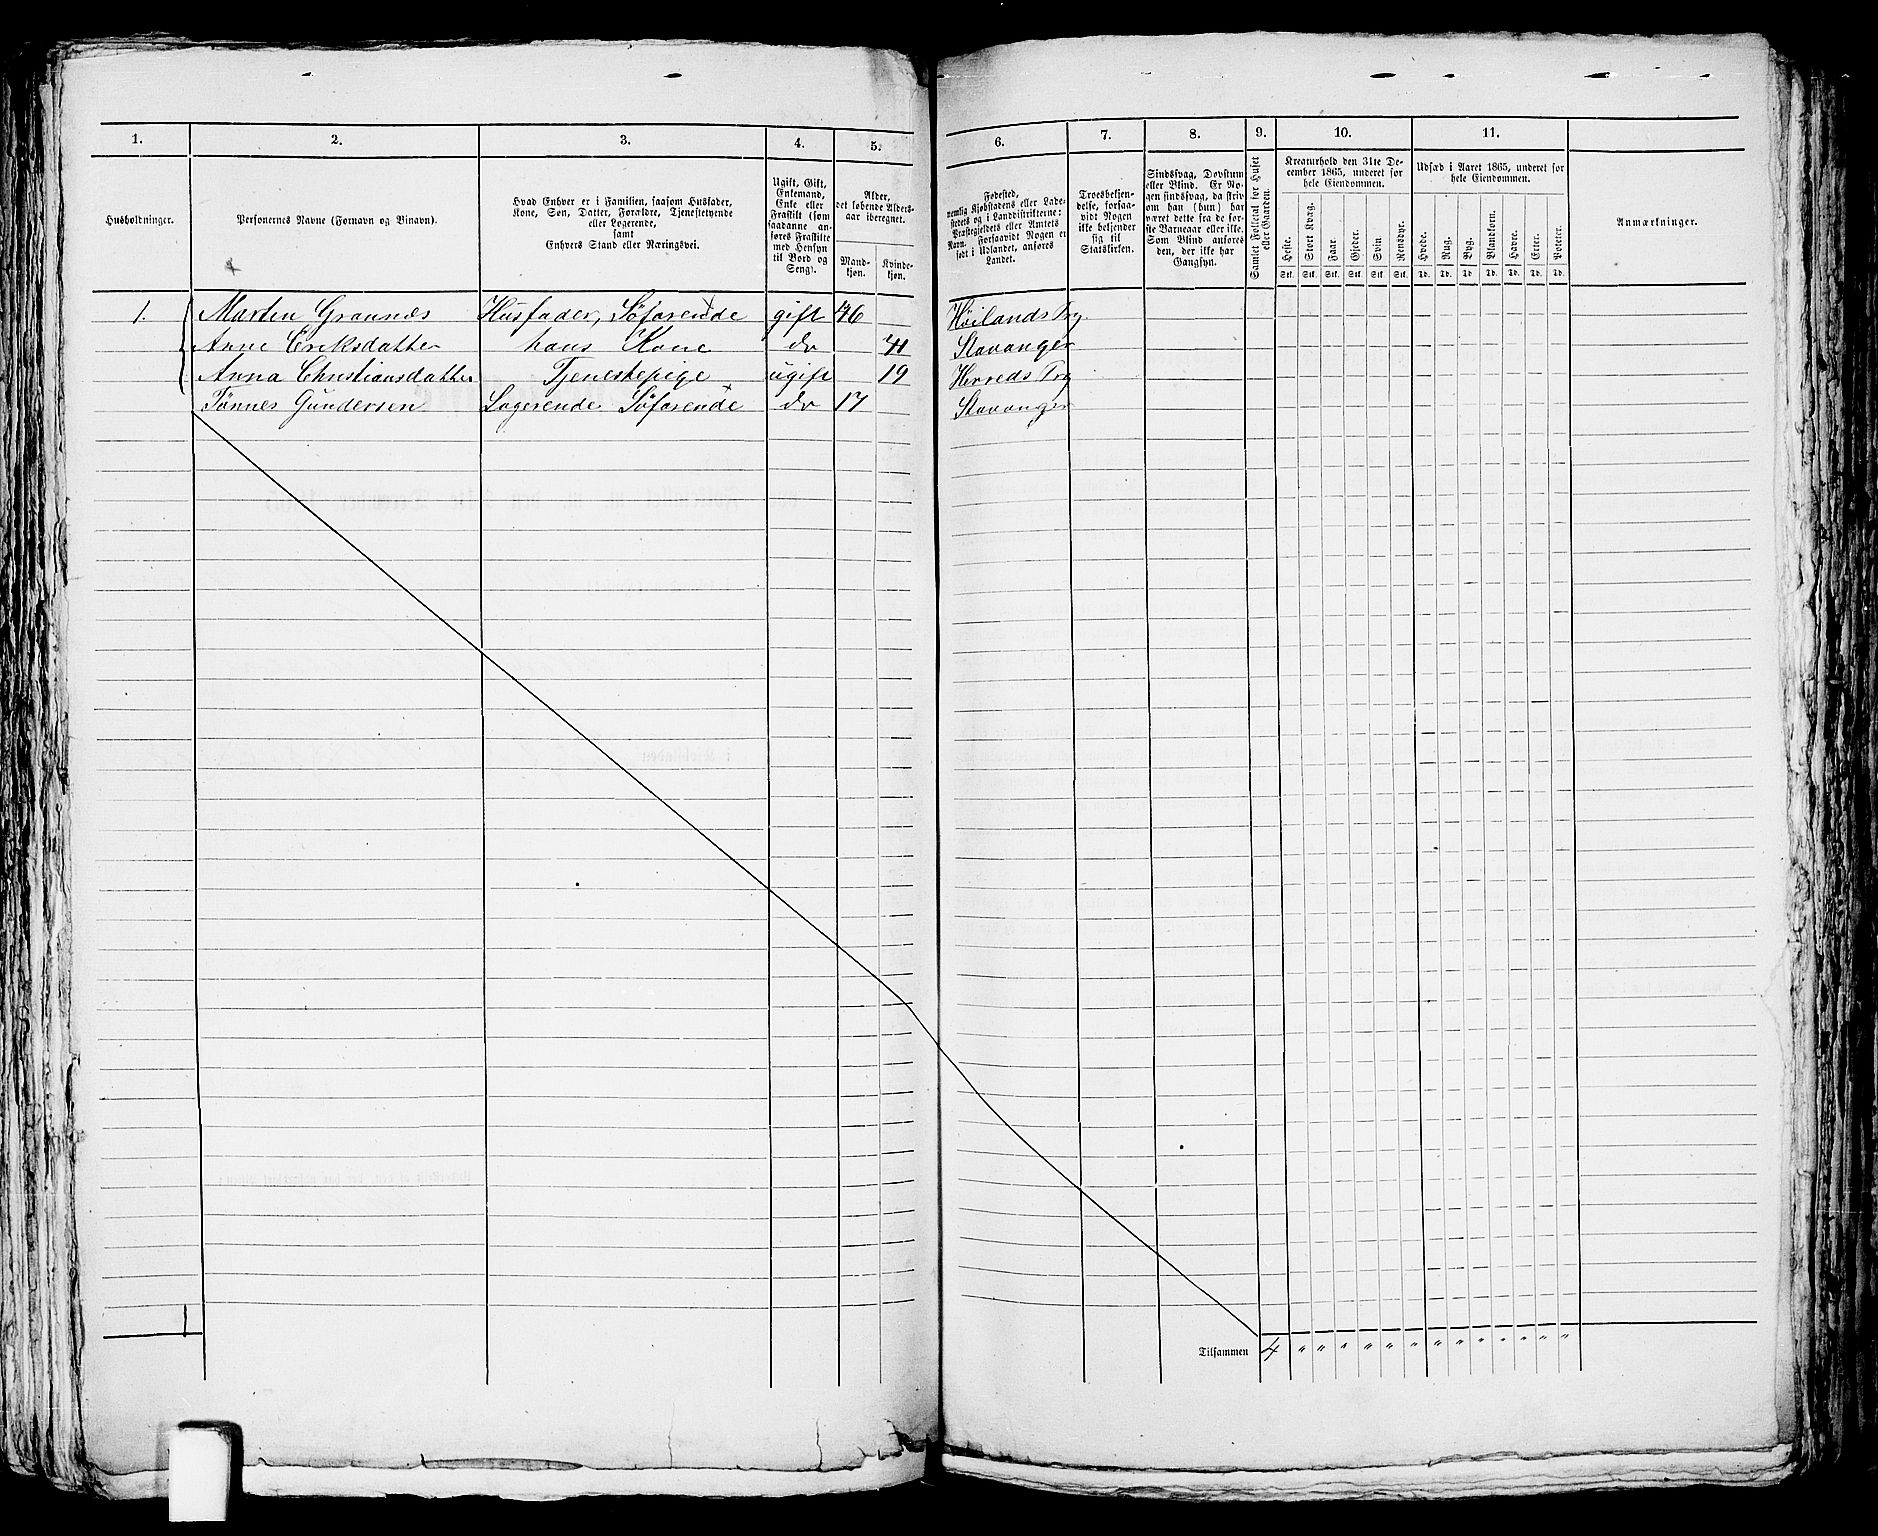 1. 2. 3. 4. 5. 6. 7. 8. 9. 10. 11.
Husholdninger.
Personernes Navne (Fornavn og Binavn).
Hvad Enhver er i Familien, saasom Husfader,
Kone, Søn, Datter, Forældre, Tjenestetyende
eller Logerende,
samt
Enhvers Stand eller Næringsvei.
Ugift, Gift,
Enkemand,
Enke eller
Fraskilt (som
saadanne an-
føres Fraskilte
med Hensyn
til Bord og
Seng).
Alder,
det løbende Alders-
aar iberegnet.
Mand-
kjøn.
Kvinde-
kjøn.
Fødested,
nemlig Kjøbstadens eller Lade-
stedets og i Landdistrikterne:
Præstegjeldets eller Amtets
Navn. Forsaavidt Nogen er
født i Udlandet, anføres
Landet.
Troesbekjen-
delse, forsaa-
vidt Nogen
ikke bekjender
sig til
Statskirken.
Sindssvag, Døvstum
eller Blind. Er No-
gen sindssvag, da skriv
om han (hun) har
været dette fra de før-
ste Barneaar eller ikke.
Som Blind anføres
den, der ikke har
Gangsyn.
Samlet Folketal for Huset
eller Gaarden.
Kreaturhold den 31te De-
cember 1865, underet for
hele Eiendommen.
Heste. Stort Kvæg. Faar. Gjeder. Svin. Rensdyr.
Stk. Stk. Stk. Stk. Stk. Stk.
Udsæd i Aaret 1865, underet for
hele Eiendommen.
Hvede. Rug. Byg. Blandkorn. Havre. Erter. Poteter.
Td. Td. Td. Td. Td. Td. Td.
Anmærkninger.
1. Husfader, Søfarende gift 46 Høilands Prg
Anne Eriksdatter hans Kone do 41 Stavanger
Anna Christiansdatter Tjenestepige ugift 19 Herreds Prg
Tønnes Gundersen Logerende Søfarende do 17 Stavanger
1
Tilsammen 4 " " " " " " " " " " " " "